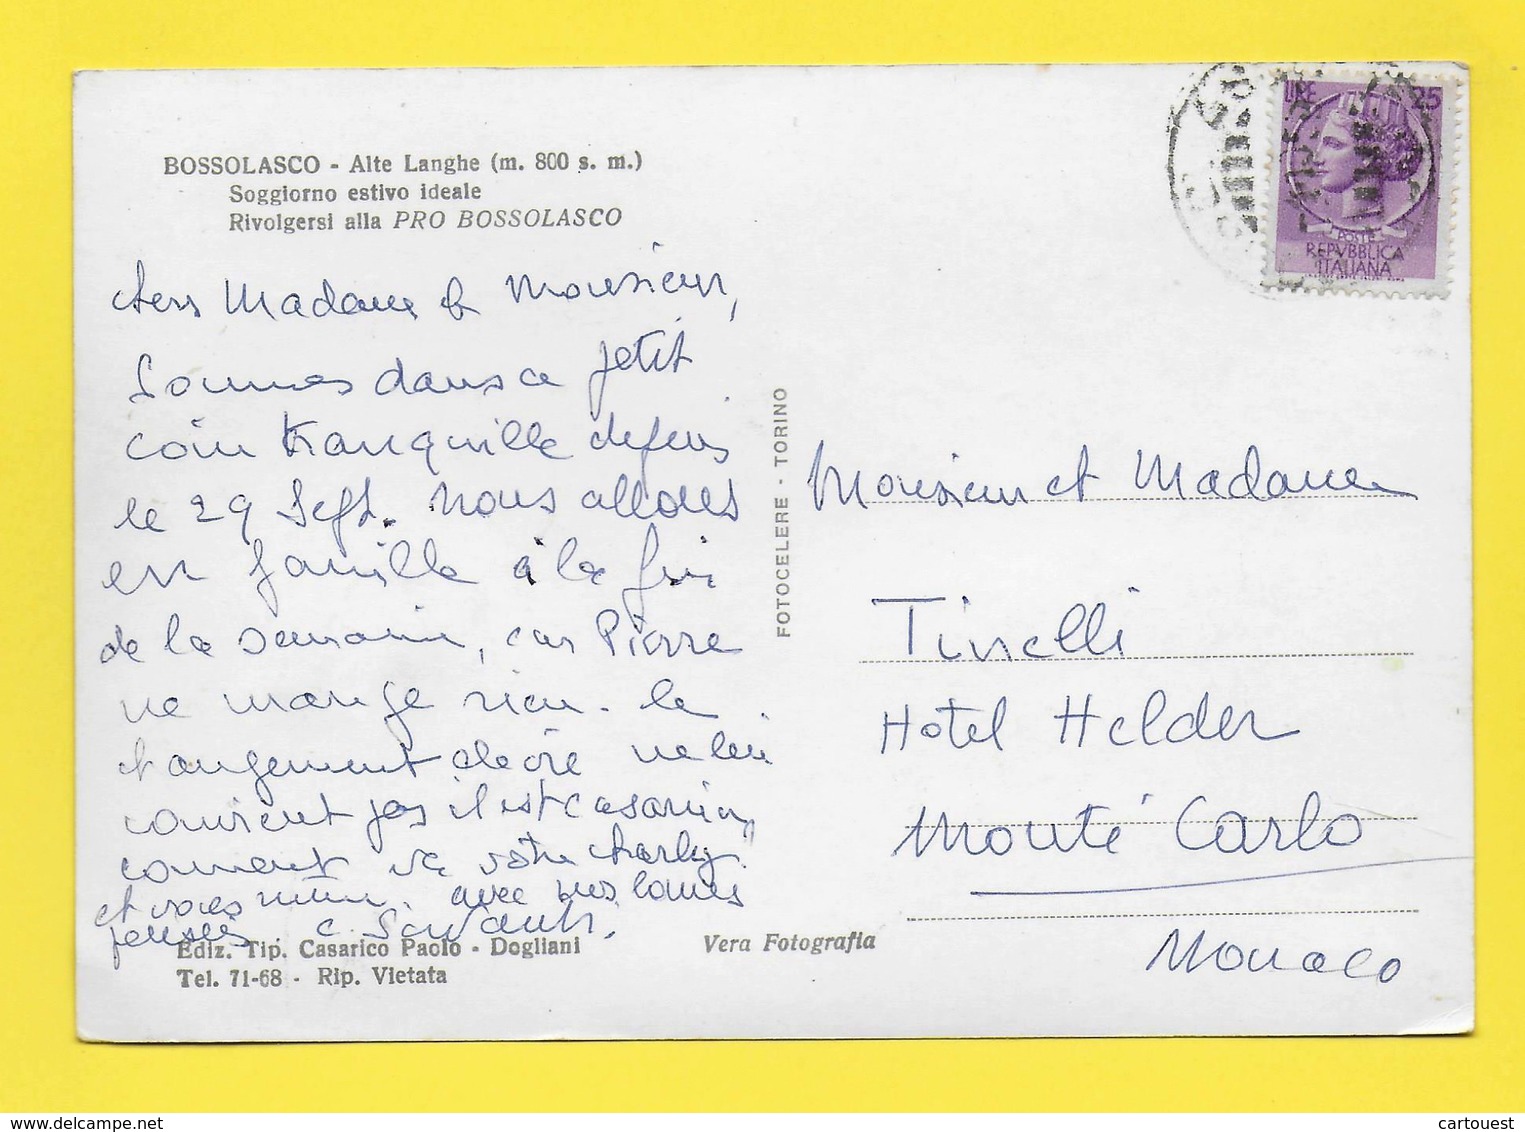 BOSSOLASCO - Alte Langhe (m. 800 s. m.)
Soggiorno estivo ideale
Rivolgersi alla PRO BOSSOLASCO
LIRE 25
POSTE
REPVBBLICA
ITALIANA
chers Madame & Monsieur,
Sommes dans ce petit
coin tranquille depuis
le 29 Sept. nous allons
en famille à la fin
de la semaine, car Pierre
ne mange rien. le
changement ne lui
convient pas il est casanier
coment va votre charly
et vous même. avec nos bonnes
pensées. C.
FOTOCELERE - TORINO
Monsieur et Madame
Tinelli
Hotel Helder
Monté Carlo
Monaco
Ediz. Tip. Casarico Paolo - Dogliani
Tel. 71-68 - Rip. Vietata
Vera Fotografia
delcampe.net
cartouest